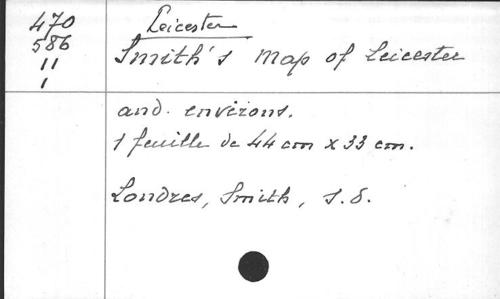 470
586
11
1
Leicester
Smith's map of Leicester
and. environs.
1 feuille de 44 cm x 33 cm.
Londres, Smith, s.d.